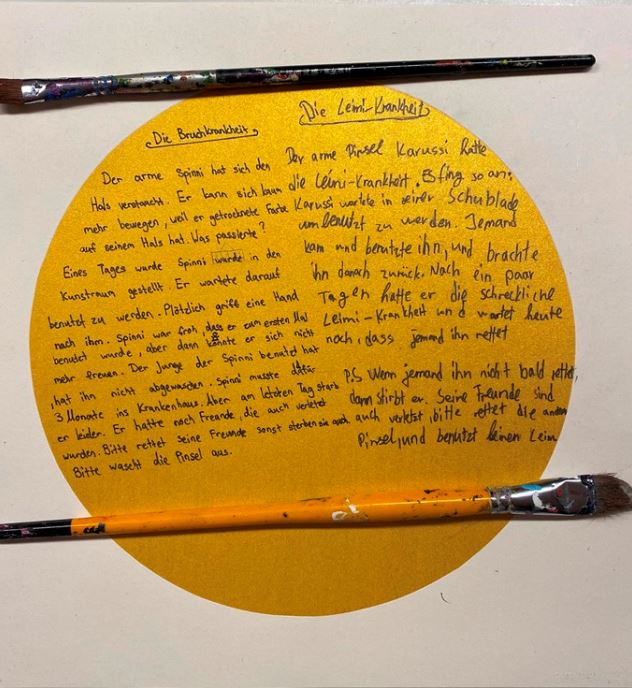 Die Bruchkrankheit
Der arme Spinni hat sich den
Hals verstaucht. Er kann sich kaum
mehr bewegen, weil er getrocknete Farbe
auf seinem Hals hat. Was passierte?
Eines Tages wurde Spinni wurde in den
Kunstraum gestellt. Er wartete darauf
benutzt zu werden. Plötzlich griff eine Hand
nach ihm. Spinni war froh, dass er zum ersten Mal
benutzt wurde, aber dann konnte er sich nicht
mehr freuen. Der Junge der Spinni benutzt hat
, hat ihn nicht abgewaschen. Spinni musste dafür
3 Monate ins Krankenhaus. Aber am letzten Tag starb
er leider. Er hatte noch Freunde, die auch verletzt
wurden. Bitte rettet seine Freunde sonst sterben sie auch.
Bitte wascht die Pinsel aus.

Die Leimi-Krankheit
Der arme Pinsel Karussi hatte
die Leimi-Krankheit. Es fing so an:
Karussi wartete in seiner Schublade
um benutzt zu werden. Jemand
kam und benutzte ihn, und brachte
ihn danach zurück. Nach ein paar
Tagen hatte er die schreckliche
Leimi-Krankheit und wartet heute
noch, dass jemand ihn rettet
P.S Wenn jemand ihn nicht bald rettet,
dann stirbt er. Seine Freunde sind
auch verletzt, bitte rettet die anderen
Pinsel, und benutzt keinen Leim